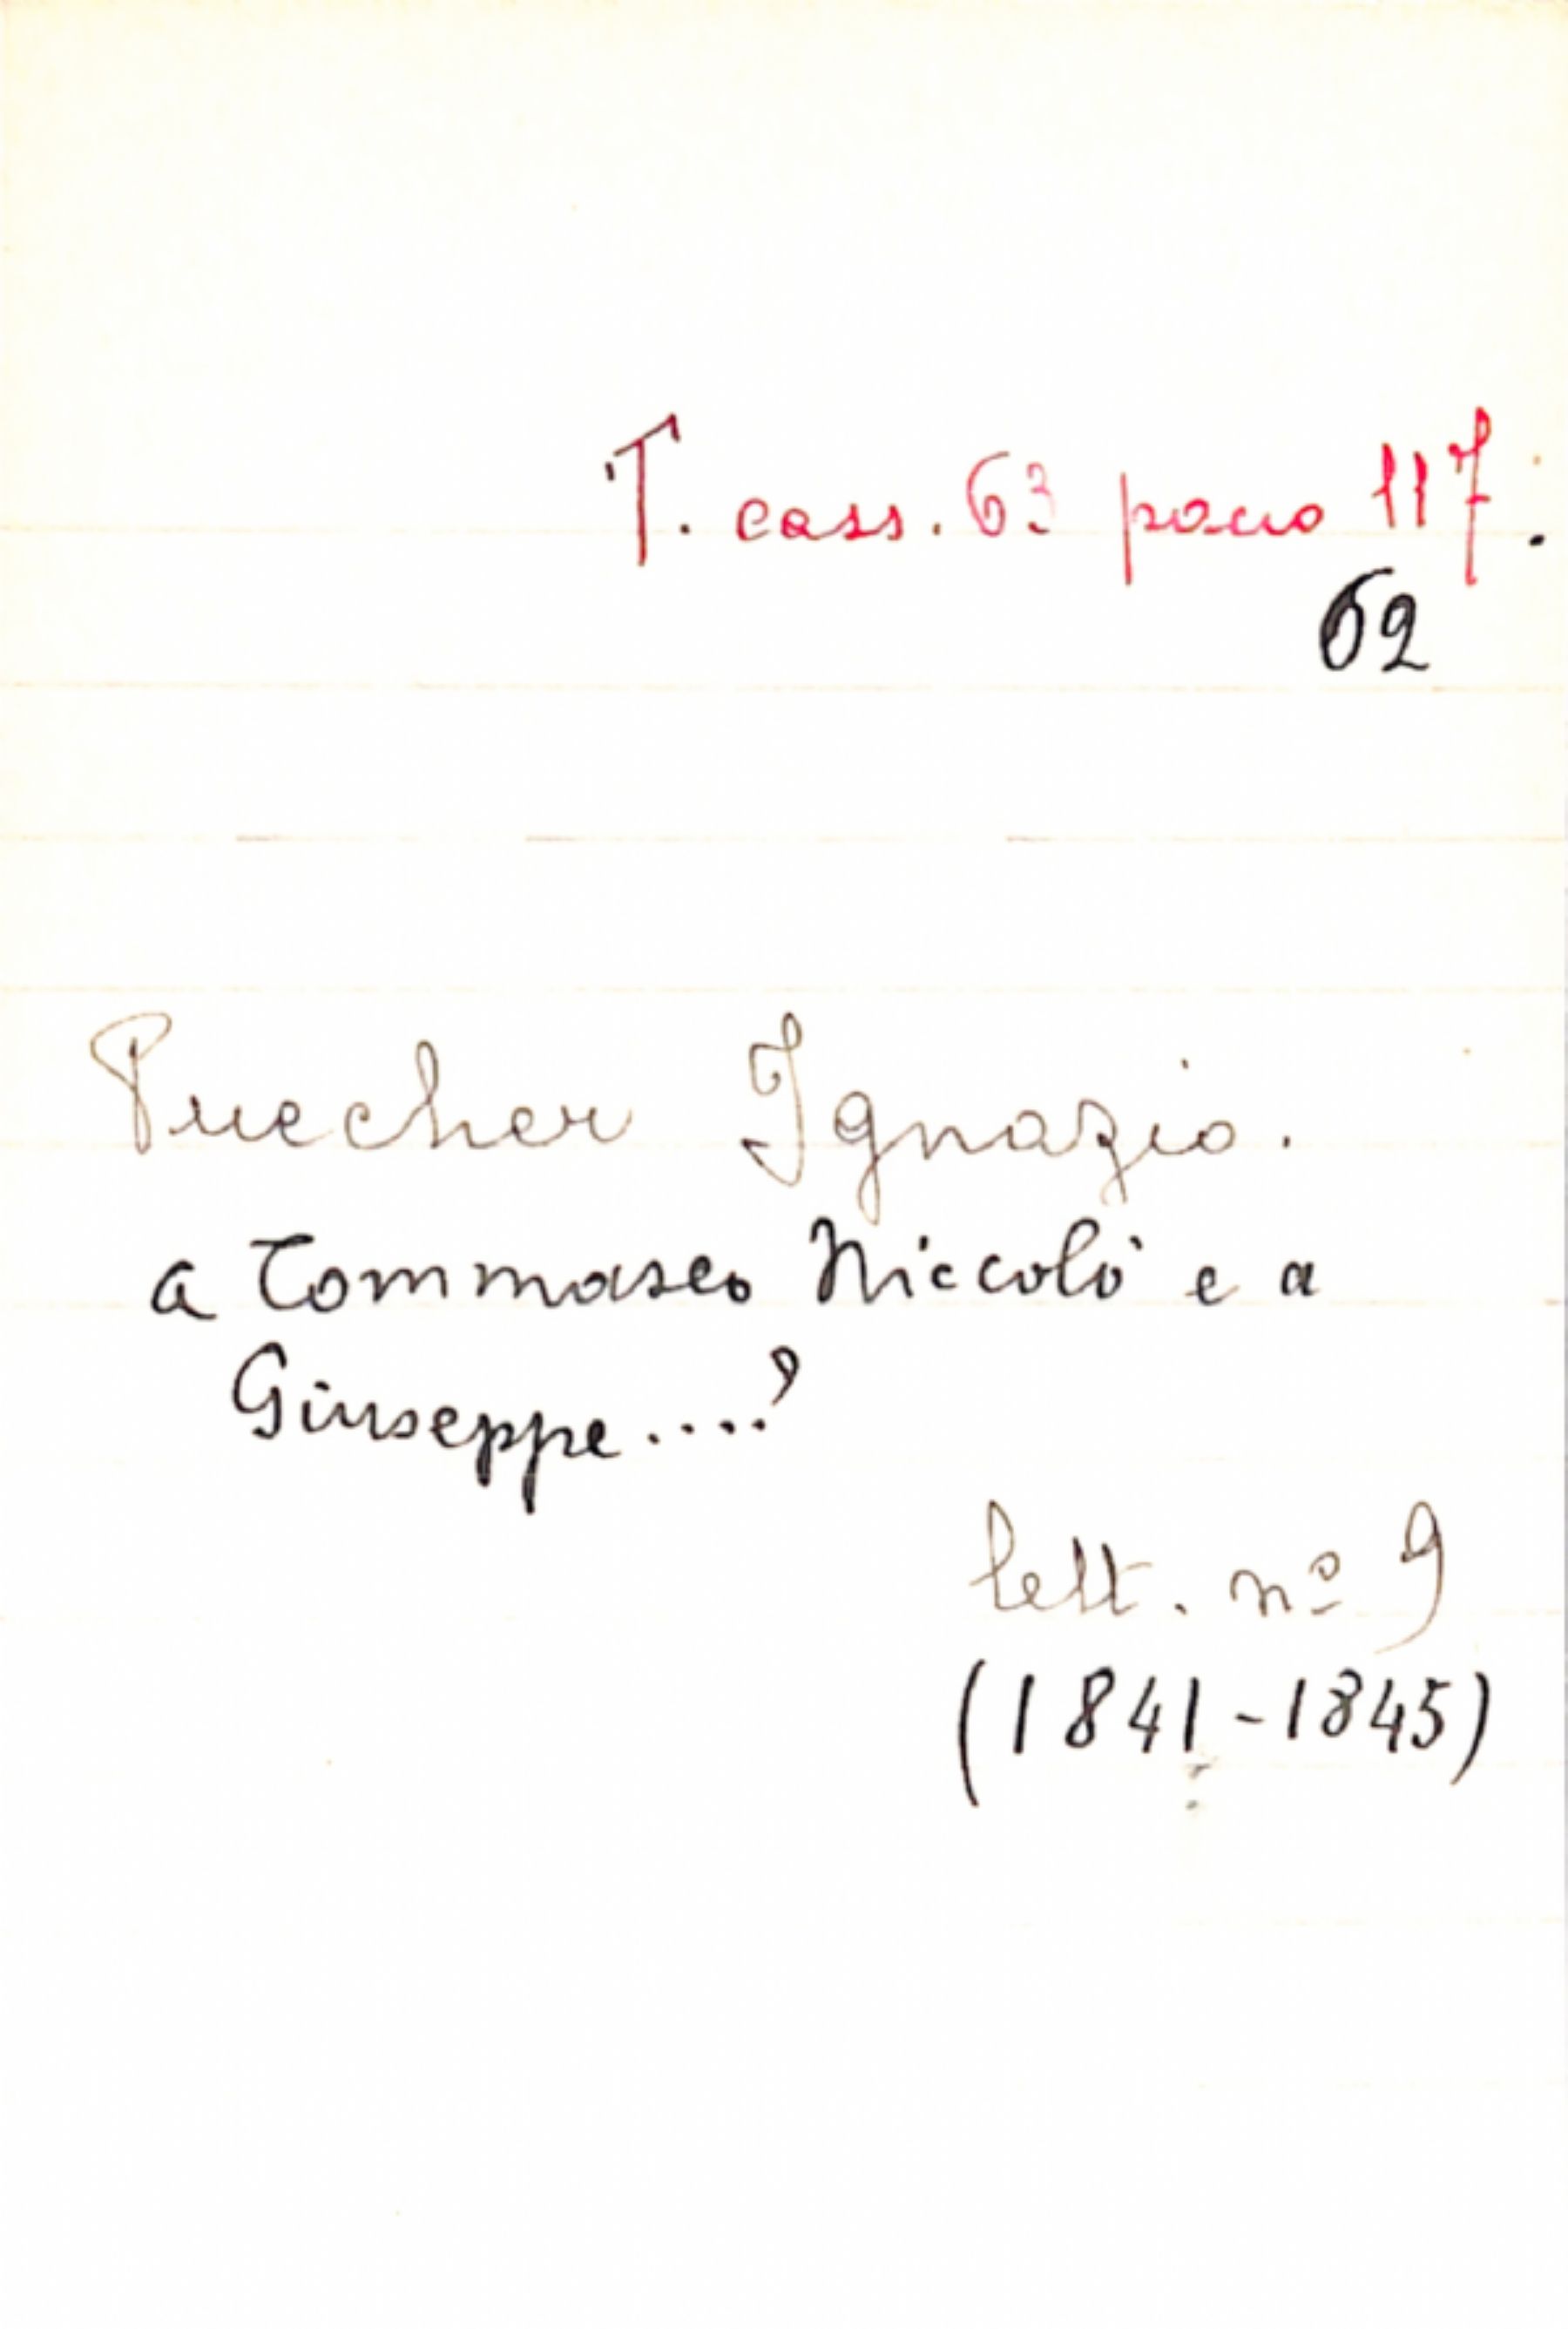 T. cass. 63 pacco 117.
62
Puecher Ignazio.
a Tommaseo Niccolò e a
Giuseppe....?
lett. nº 9
(1841-1845)